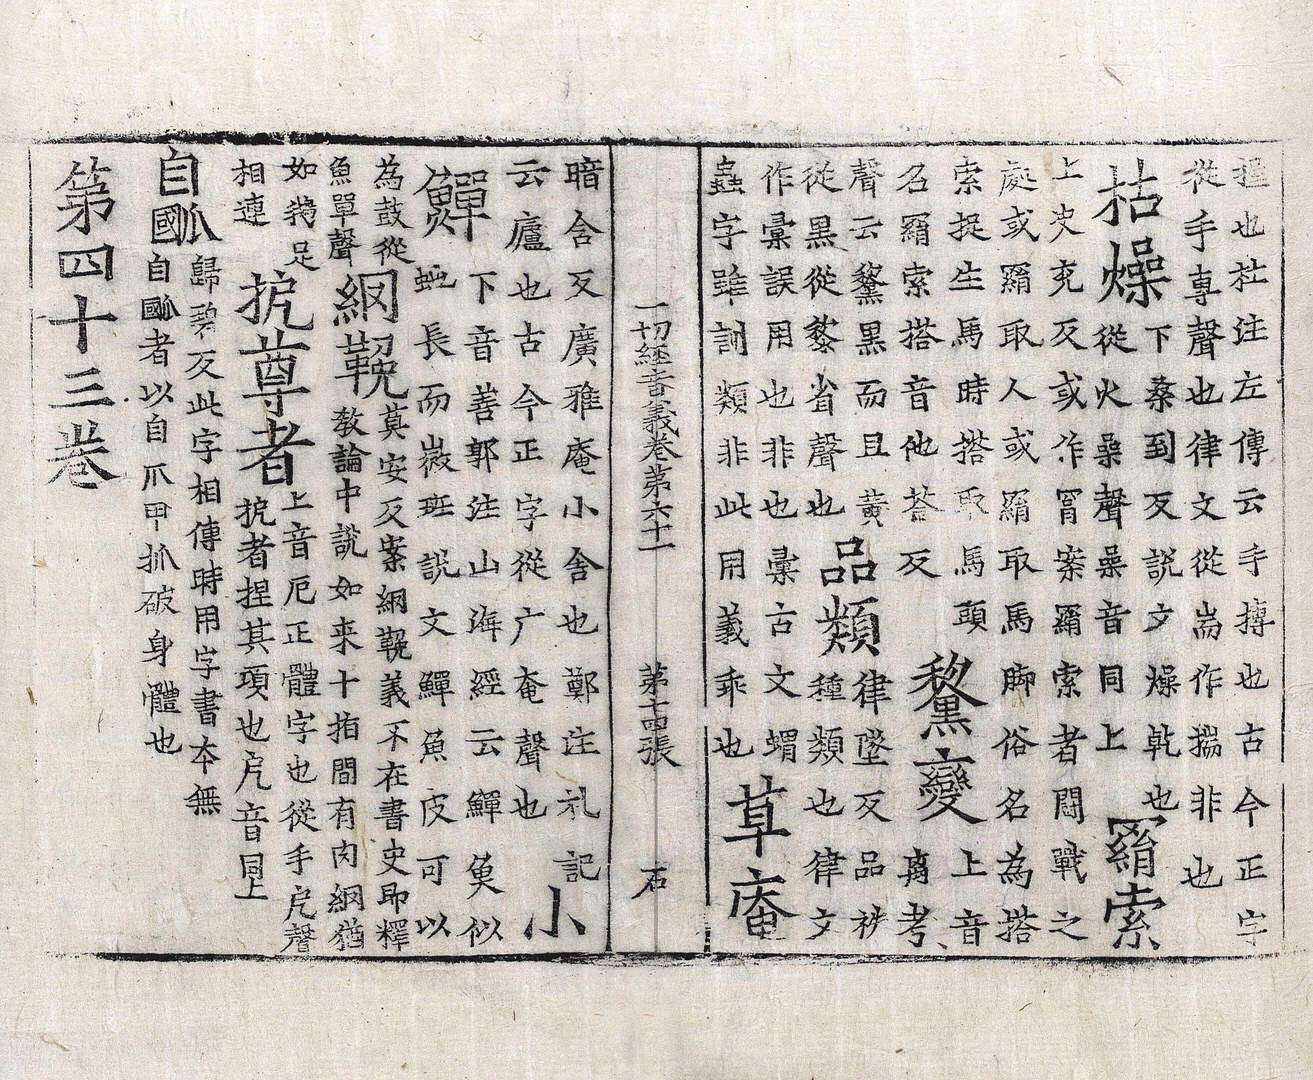 揑也杜注左傳云手摶也古今正字
從手專聲也律文從耑作揣非也
枯燥下桑到反說文燥乾也
從火喿聲喿音同上
羂索
上史兖反或作罥案羂索者鬪戰之
處或羂取人或羂取馬脚俗名為搭
索捉生馬時搭取馬頭
名羂索搭音他荅反
黧變上音
离考
聲云黧黒而且黃
從黒從黎省聲也
品類律墜反品袟
種類也律文
作彙誤用也非也彙古文蝟
蟲字雖訓類非此用義乖也
草庵
一切經音義卷第六十一
第十四張
石
暗含反廣雅庵小舍也鄭注礼記
云廬也古今正字從广奄聲也
小
鱓下音善郭注山海經云鱓魚似
虵長而微班說文鱓魚皮可以
為鼓從
魚單聲
網鞔莫安反案網鞔義不在書史即釋
教論中說如来十指間有肉網猶
如鵝足
相連
抳尊者上音厄正體字也從手戹聲
抳者捏其項也戹音同上
自㧓歸碧反此字相傳時用字書本無
自㧓者以自爪甲抓破身體也
第四十三卷